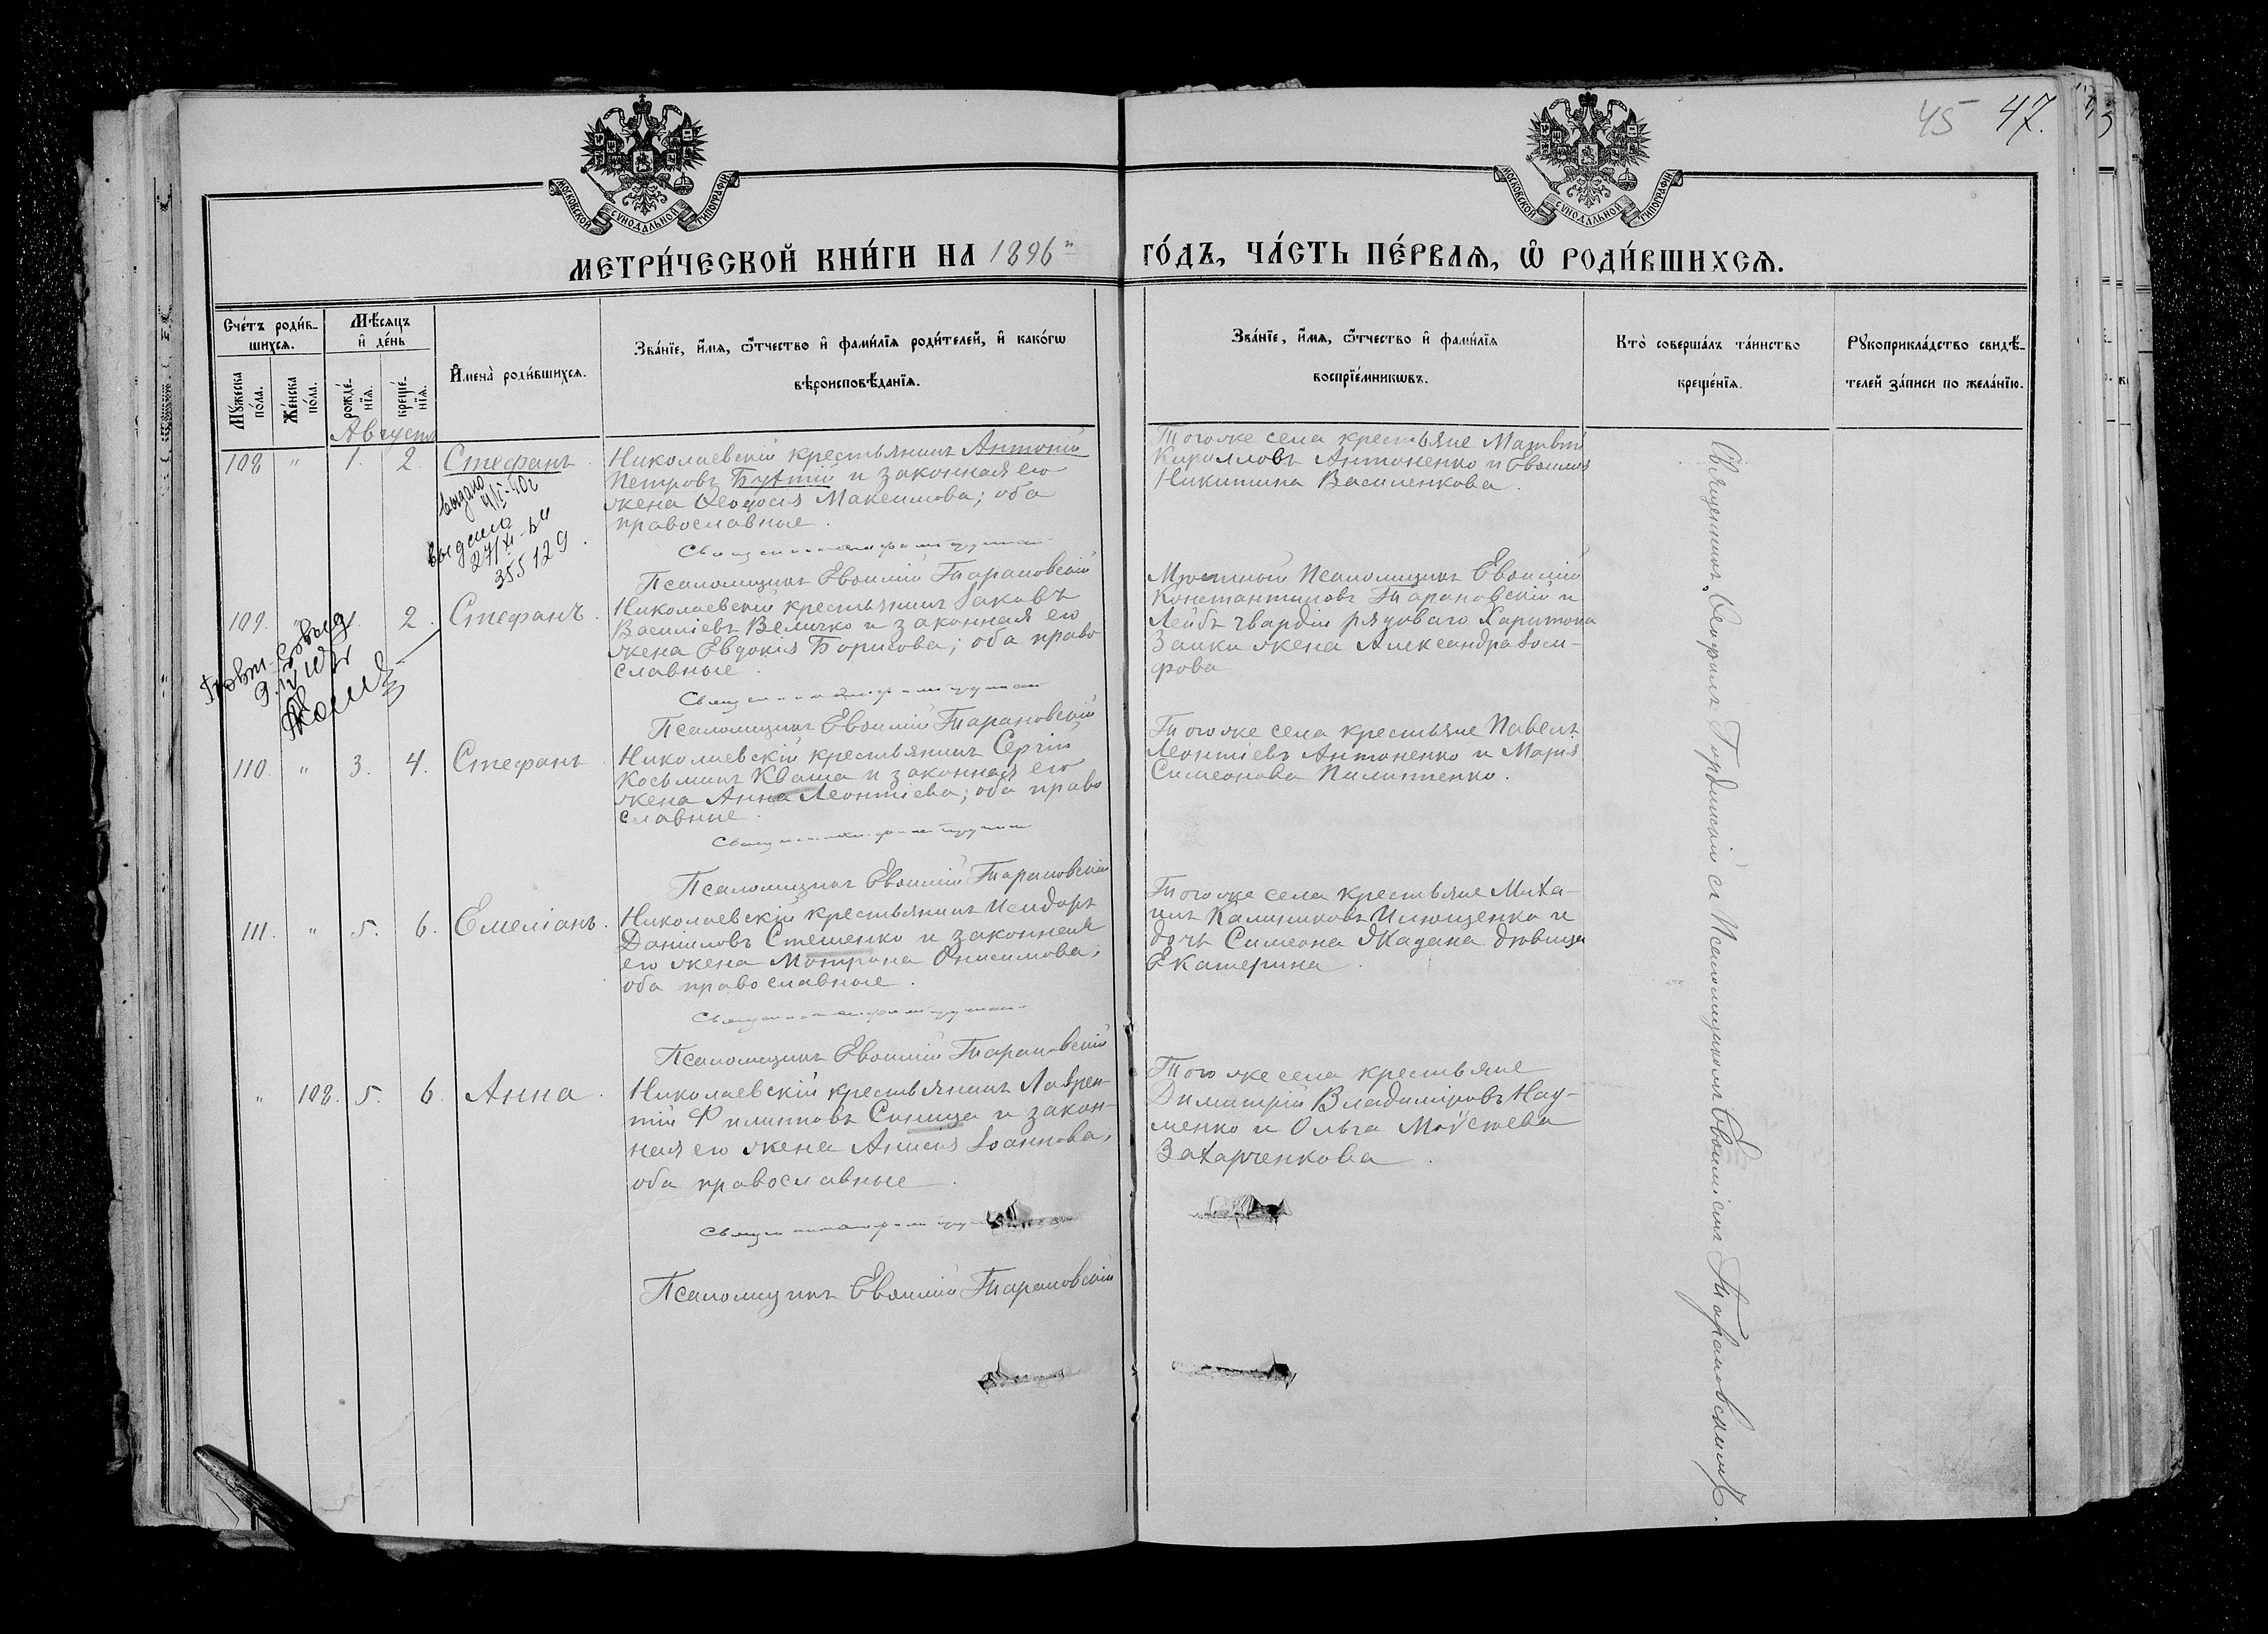 45 47.
МОСКОВСКОЙ СУНОДАЛЬНОЙ ТИПОГРАФІИ
МОСКОВСКОЙ СУНОДАЛЬНОЙ ТИПОГРАФІИ
МЕТРИ́ЧЕСКОЙ КНИ́ГИ НА 1896й ГО́ДЪ, ЧА́СТЬ ПЕ́РВАѦ, Ѡ҆ РОДИ́ВШИХСѦ.
Сче́тъ роди́в-
шихсѧ.
Мꙋжеска по́ла.
Же́нска по́ла.
Мѣ́сѧцъ
и҆ де́нь
рожде́-
нїѧ.
креще́-
нїѧ.
И҆мена̀ роди́вшихсѧ.
Зва́нїе, и҆́мѧ, ѻ҆́тчество и҆ фами́лїѧ роди́телей, и҆ како́гѡ
вѣроисповѣ́данїѧ.
Зва́нїе, и҆́мѧ, ѻ҆́тчество и҆ фами́лїѧ
воспрїе́мникѡвъ.
Кто̀ соверша́лъ та́инство
креще́нїѧ.
Рꙋкоприкла́дство свидѣ́-
телей за́писи по жела́нїю.
Августа
108 " 1. 2. Стефанъ.
выдано
выдано
355129.
Николаевскій крестьянинъ Антоній
Петровъ Бутній и законная его
жена Ѳеодосія Максимова; оба
православные.
Псаломщикъ Евѳимій Тарановскій
Тогоже села крестьяне Матвѣй
Кирилловъ Антоненко и Евѳимія
Никитина Василенкова.
109. 1. 2. Стефанъ.
Николаевскій крестьянинъ Іаковъ
Василіевъ Величко и законная его
жена Евдокія Борисова; оба право
славные.
Псаломщикъ Евѳимій Тарановскій
Мѣстный Псаломщикъ Евѳимій
Константиновъ Тарановскій и
Лейбъ гвардіи рядоваго Харитона
Заики жена Александра Іоси-
фова
110. " 3. 4. Стефанъ.
Николаевскій крестьянинъ Сергій
Косьминъ Кваша и законная его
жена Анна Леонтіева; оба право
славные.
Псаломщикъ Евѳимій Тарановскій
Тогоже села крестьяне Павелъ
Леонтіевъ Антоненко и Марія
Симеонова Пилипенко.
111. " 5. 6. Емеліанъ.
Николаевскій крестьянинъ Исидоръ
Даниловъ Стешенко и законная
его жена Мотрона Онисимова;
оба православные.
Псаломщикъ Евѳимій Тарановскій
Тогоже села крестьяне Миха-
илъ Калиниковъ Илющенко и
дочь Симеона Жадана дѣвица
Екатерина.
" 108. 5. 6. Анна.
Николаевскій крестьянинъ Лаврен-
тій Филипповъ Синица и закон-
ная его жена Анисія Іоаннова;
оба православные.
Псаломщикъ Евѳимій Тарановскій
Тогоже села крестьяне
Димитрій Владиміровъ Нау-
менко и Ольга Моѵсеева
Захарченкова.
Священникъ Ѳеофилъ Гординскій съ Псаломщикомъ Евѳиміемъ Тарановскимъ.